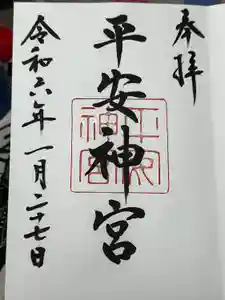 奉拝
平安神宮
令和六年一月二十七日
平安神宮